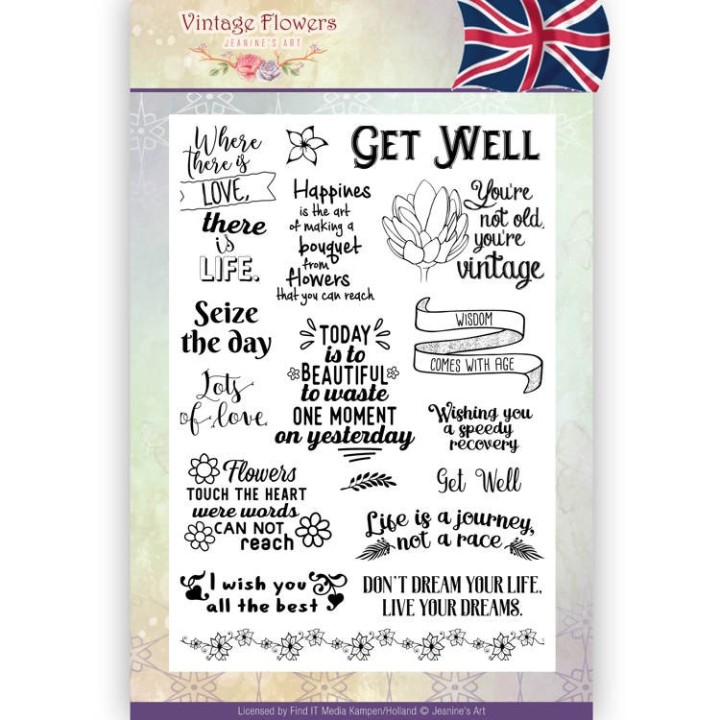 Vintage Flowers
JEANINE'S ART
Where
there is
LOVE,
there
is
LIFE.
GET WELL
Happines
is the art
of making a
bouquet
from
flowers
that you can reach
You're
not old,
you're
vintage
Seize
the day
TODAY
is to
BEAUTIFUL
to waste
ONE MOMENT
on yesterday
WISDOM
COMES WITH AGE
Lots
of love
Wishing you
a speedy
recovery
Flowers
TOUCH THE HEART
were words
CAN NOT
reach
Get Well
Life is a journey,
not a race
I wish you
all the best
DON'T DREAM YOUR LIFE,
LIVE YOUR DREAMS.
Licensed by Find IT Media Kampen/Holland © Jeanine's Art